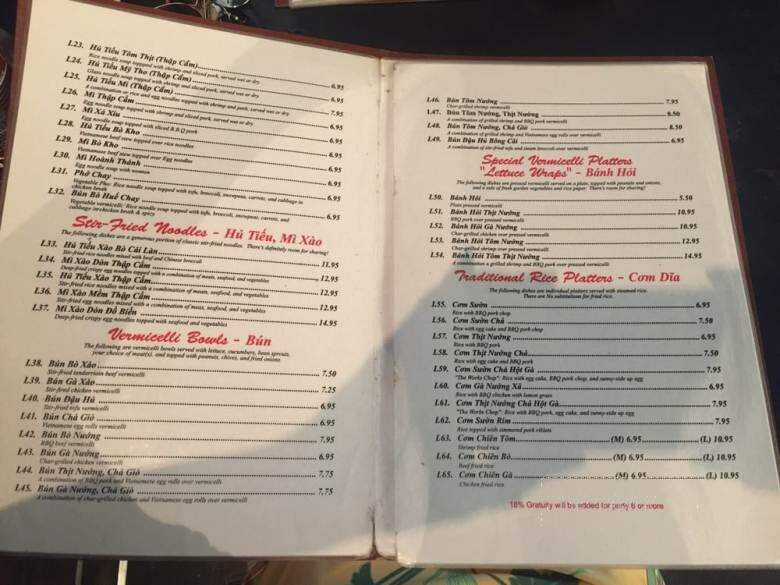 L23. Hủ Tiếu Tôm Thịt (Thập Cẩm) 6.95
Rice noodle soup topped with shrimp and sliced pork, served wet or dry
L24. Hủ Tiếu Mỹ Tho (Thập Cẩm) 6.95
Glass noodle soup topped with shrimp and sliced pork, served wet or dry.
L25. Hủ Tiếu Mì (Thập Cẩm) 7.95
A combination or rice and egg noodles topped with shrimp and pork, served wet or dry.
L26. Mì Thập Cẩm 6.95
Egg noodle soup topped with shrimp and sliced pork, served wet or dry.
L27. Mì Xá Xíu 6.95
Egg noodle soup topped with sliced B.B.Q pork
L28. Hủ Tiếu Bò Kho 6.95
Vietnamese beef stew topped over rice noodles
L29. Mì Bò Kho 6.95
Vietnamese beef stew topped over Egg noodles
L30. Mì Hoành Thánh 6.95
Egg noodle soup with wonton
L31. Phở Chay 6.95
Vegetable Pho: Rice noodle soup topped with tofu, broccoli, snowpeas, carrots, and cabbage in
chicken broth
L32. Bún Bò Huế Chay 6.95
Vegetable vermicelli: Rice noodle soup topped with tofu, broccoli, snowpeas, carrots, and
cabbage in chicken broth & spicy
Stir-Fried Noodles - Hủ Tiếu, Mì Xào
The following dishes are a generous portion of classic stir-fried noodles. There's definitely room for sharing!
L33. Hủ Tiếu Xào Bò Cải Làn 11.95
Stir-fried rice noodles mixed with beef and Chinese broccoli
L34. Mì Xào Dòn Thập Cẩm 12.95
Deep-fried crispy egg noodles topped with a combination of meats, seafood, and vegetables
L35. Hủ Tiếu Xào Thập Cẩm 12.95
Stir-fried rice noodles mixed with a combination of meats, seafood, and vegetables
L36. Mì Xào Mềm Thập Cẩm 12.95
Stir-fried egg noodles mixed with a combination of meats, seafood, and vegetables
L37. Mì Xào Dòn Đồ Biển 14.95
Deep-fried crispy egg noodles topped with seafood and vegetables
Vermicelli Bowls - Bún
The following are vermicelli bowls served with lettuce, cucumbers, bean sprouts,
your choice of meat(s), and topped with peanuts, chives, and fried onions.
L38. Bún Bò Xào 7.50
Stir-fried tenderloin beef vermicelli
L39. Bún Gà Xào 7.25
Stir-fried chicken vermicelli
L40. Bún Đậu Hủ 6.95
Stir-fried tofu vermicelli
L41. Bún Chả Giò 6.95
Vietnamese egg rolls vermicelli
L42. Bún Bò Nướng 6.95
BBQ beef vermicelli
L43. Bún Gà Nướng 6.95
Char-grilled chicken vermicelli
L44. Bún Thịt Nướng, Chả Giò 7.75
A combination of BBQ pork and Vietnamese egg rolls over vermicelli
L45. Bún Gà Nướng, Chả Giò 7.75
A combination of char-grilled chicken and Vietnamese egg rolls over vermicelli
L46. Bún Tôm Nướng 7.95
Char-grilled shrimp vermicelli
L47. Bún Tôm Nướng, Thịt Nướng 8.50
A combination of grilled shrimp and BBQ pork vermicelli
L48. Bún Tôm Nướng, Chả Giò 8.50
A combination of grilled shrimp and Vietnamese egg rolls over vermicelli
L49. Bún Đậu Hủ Bông Cải 6.95
A combination of stir-fried tofu and steam broccoli over vermicelli
Special Vermicelli Platters
"Lettuce Wraps" - Bánh Hỏi
The following dishes are pressed vermicelli served on a plate, topped with peanuts and onions,
and a side of fresh garden vegetables and rice papers. There's room for sharing!
L50. Bánh Hỏi 5.50
Plain pressed vermicelli
L51. Bánh Hỏi Thịt Nướng 10.95
BBQ pork over pressed vermicelli
L52. Bánh Hỏi Gà Nướng 10.95
Char-grilled chicken over pressed vermicelli
L53. Bánh Hỏi Tôm Nướng 12.95
Char-grilled shrimp over pressed vermicelli
L54. Bánh Hỏi Tôm Thịt Nướng 14.95
A combination a grilled shrimp and BBQ pork over pressed vermicelli
Traditional Rice Platters - Cơm Dĩa
The following dishes are individual platters served with steamed rice.
There are No substitutions for fried rice.
L55. Cơm Sườn 6.95
Rice with BBQ pork chop
L56. Cơm Sườn Chả 7.50
Rice with egg cake and BBQ pork chop
L57. Cơm Thịt Nướng 6.95
Rice with BBQ pork
L58. Cơm Thịt Nướng Chả 7.50
Rice with egg cake and BBQ pork
L59. Cơm Sườn Chả Hột Gà 7.95
"The Works Chop": Rice with egg cake, BBQ pork chop, and sunny-side up egg
L60. Cơm Gà Nướng Xả 6.95
Rice with BBQ chicken with lemon grass
L61. Cơm Thịt Nướng Chả Hột Gà 7.95
"The Works Chop": Rice with BBQ pork, egg cake, and sunny-side up egg
L62. Cơm Sườn Rim 7.95
Rice topped with simmered pork riblets
L63. Cơm Chiên Tôm (M) 6.95 (L) 10.95
Shrimp fried rice
L64. Cơm Chiên Bò (M) 6.95 (L) 10.95
Beef fried rice
L65. Cơm Chiên Gà (M) 6.95 (L) 10.95
Chicken fried rice
18% Gratuity will be added for party 6 or more